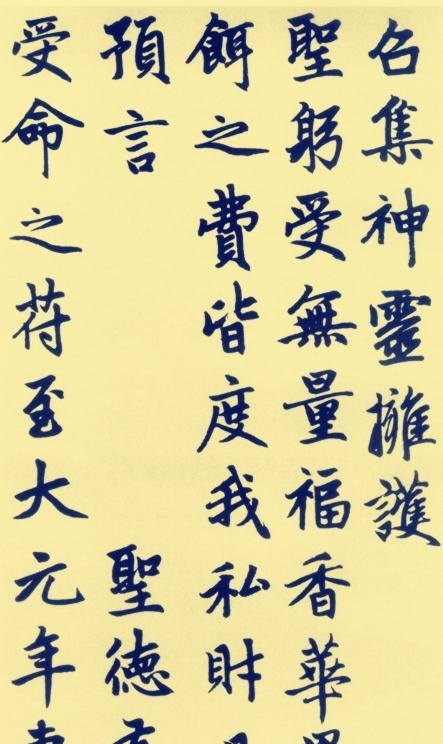 召集神靈擁護
聖躬受無量福香華
餌之費皆度我私財
預言 聖德
受命之符至大元年